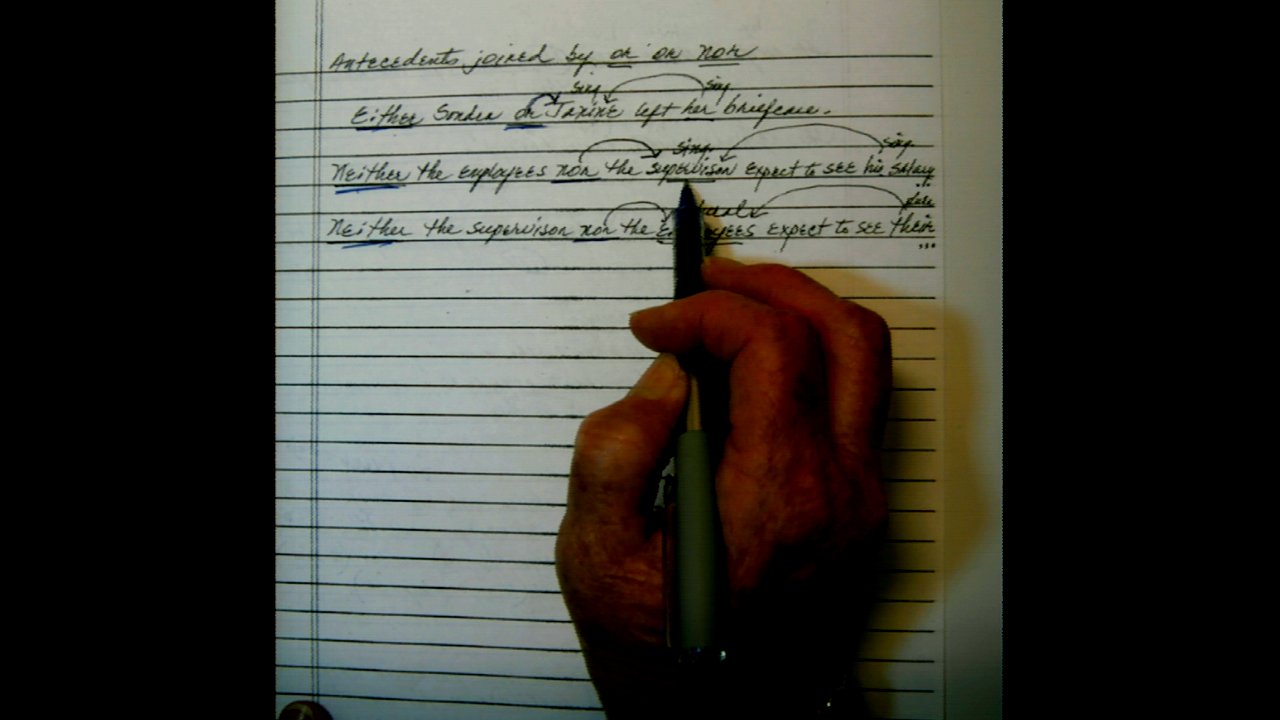 Antecedents joined by or or nor
sing. sing.
Either Sondra or Janine left her briefcase.
sing. sing.
Neither the employees nor the supervisor expect to see his salary ...
Neither the supervisor nor the expect to see their ...